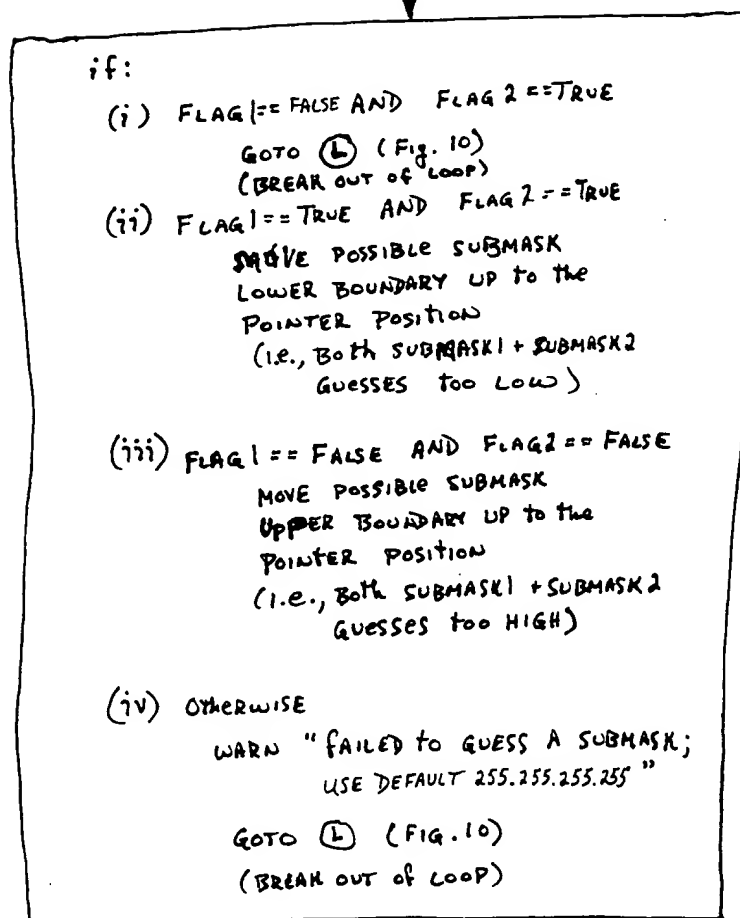 if:
(i) FLAG1== FALSE AND FLAG2 ==TRUE
GOTO Ⓛ (Fig. 10)
(BREAK OUT of LOOP)
(ii) FLAG1== TRUE AND FLAG2 == TRUE
MOVE POSSIBLE SUBMASK
LOWER BOUNDARY UP to the
POINTER POSITION
(i.e., Both SUBMASK1 + SUBMASK2
GUESSES too LOW)
(iii) FLAG1 == FALSE AND FLAG2 == FALSE
MOVE POSSIBLE SUBMASK
UPPER BOUNDARY UP to the
POINTER POSITION
(i.e., Both SUBMASK1 + SUBMASK2
GUESSES too HIGH)
(iv) OTHERWISE
WARN "FAILED to GUESS A SUBMASK;
USE DEFAULT 255.255.255.255"
GOTO Ⓛ (FIG.10)
(BREAK OUT of LOOP)